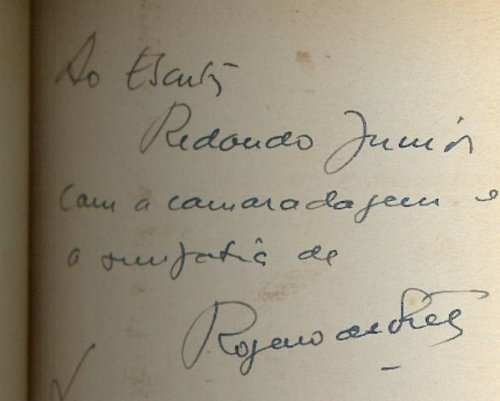 Ao Escritor
Redondo Junior
com a camaradagem e
a simpatia de
Rogerio de Freitas